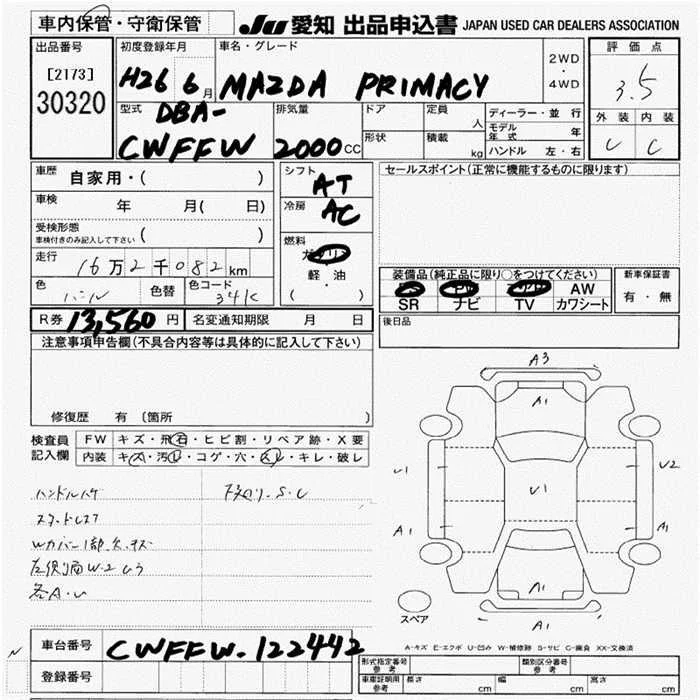 車内保管・守衛保管
JU 愛知 出品申込書 JAPAN USED CAR DEALERS ASSOCIATION
出品番号
[2173]
30320
初度登録年月
H26 6月
車名・グレード
MAZDA PRIMACY
2WD
・
4WD
評価点
3.5
外装 内装
C C
型式
DBA-
CWFFW
排気量
2000CC
ドア
形状
定員
人
積載
kg
ディーラー・並行
モデル年式 年
ハンドル 左・右
車歴
自家用・( )
車検
年 月( 日)
受検形態
車検付きのみ記入して下さい ( )
走行
16万2千082km
色
色替
色コード
34K
シフト
AT
冷房
AC
燃料
ガソリン
・
軽油
( )
セールスポイント(正常に機能するものに限ります)
装備品(純正品に限り○をつけてください)
PS PW AW
SR ナビ TV カワシート
新車保証書
有・無
R券 13,560円
名変通知期限 月 日
後日品
注意事項申告欄(不具合内容等は具体的に記入して下さい)
修復歴 有(箇所 )
検査員
記入欄
FW キズ・飛石・ヒビ割・リペア跡・X要
内装 キズ・汚レ・コゲ・穴・スレ・キレ・破レ
ハンドルハゲ
各A・U
A3
A1
U1
U1
U2
A1
A1
A1
A1
スペア
A-キズ E-エクボ U-凹み W-補修跡 S-サビ C-腐食 XX-交換済
車台番号
CWFFW-122442
登録番号
N
形式指定番号
参考
類別区分番号
参考
車庫証明用
参考
長さ cm 幅 cm 高さ cm